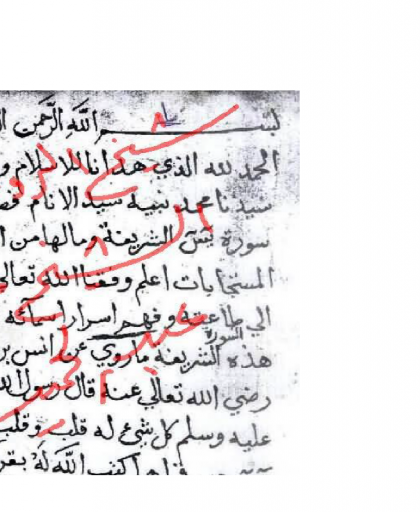 بسم الله الرحمن ا
الحمد لله الذي هدانا للاسلام و
سيدنا محمد نبيه سيد الانام
سورة يس الشريفة ومالها من ا
المستجابات اعلم وفقنا الله تعالى
الي طاعته وفهم اسرار اسمائه
السورة
هذه الشريفة ماروي عن انس بن
رضي الله تعالي عنه قال رسول الله
عليه وسلم كل شئ له قلب وقلب
الله له بقر